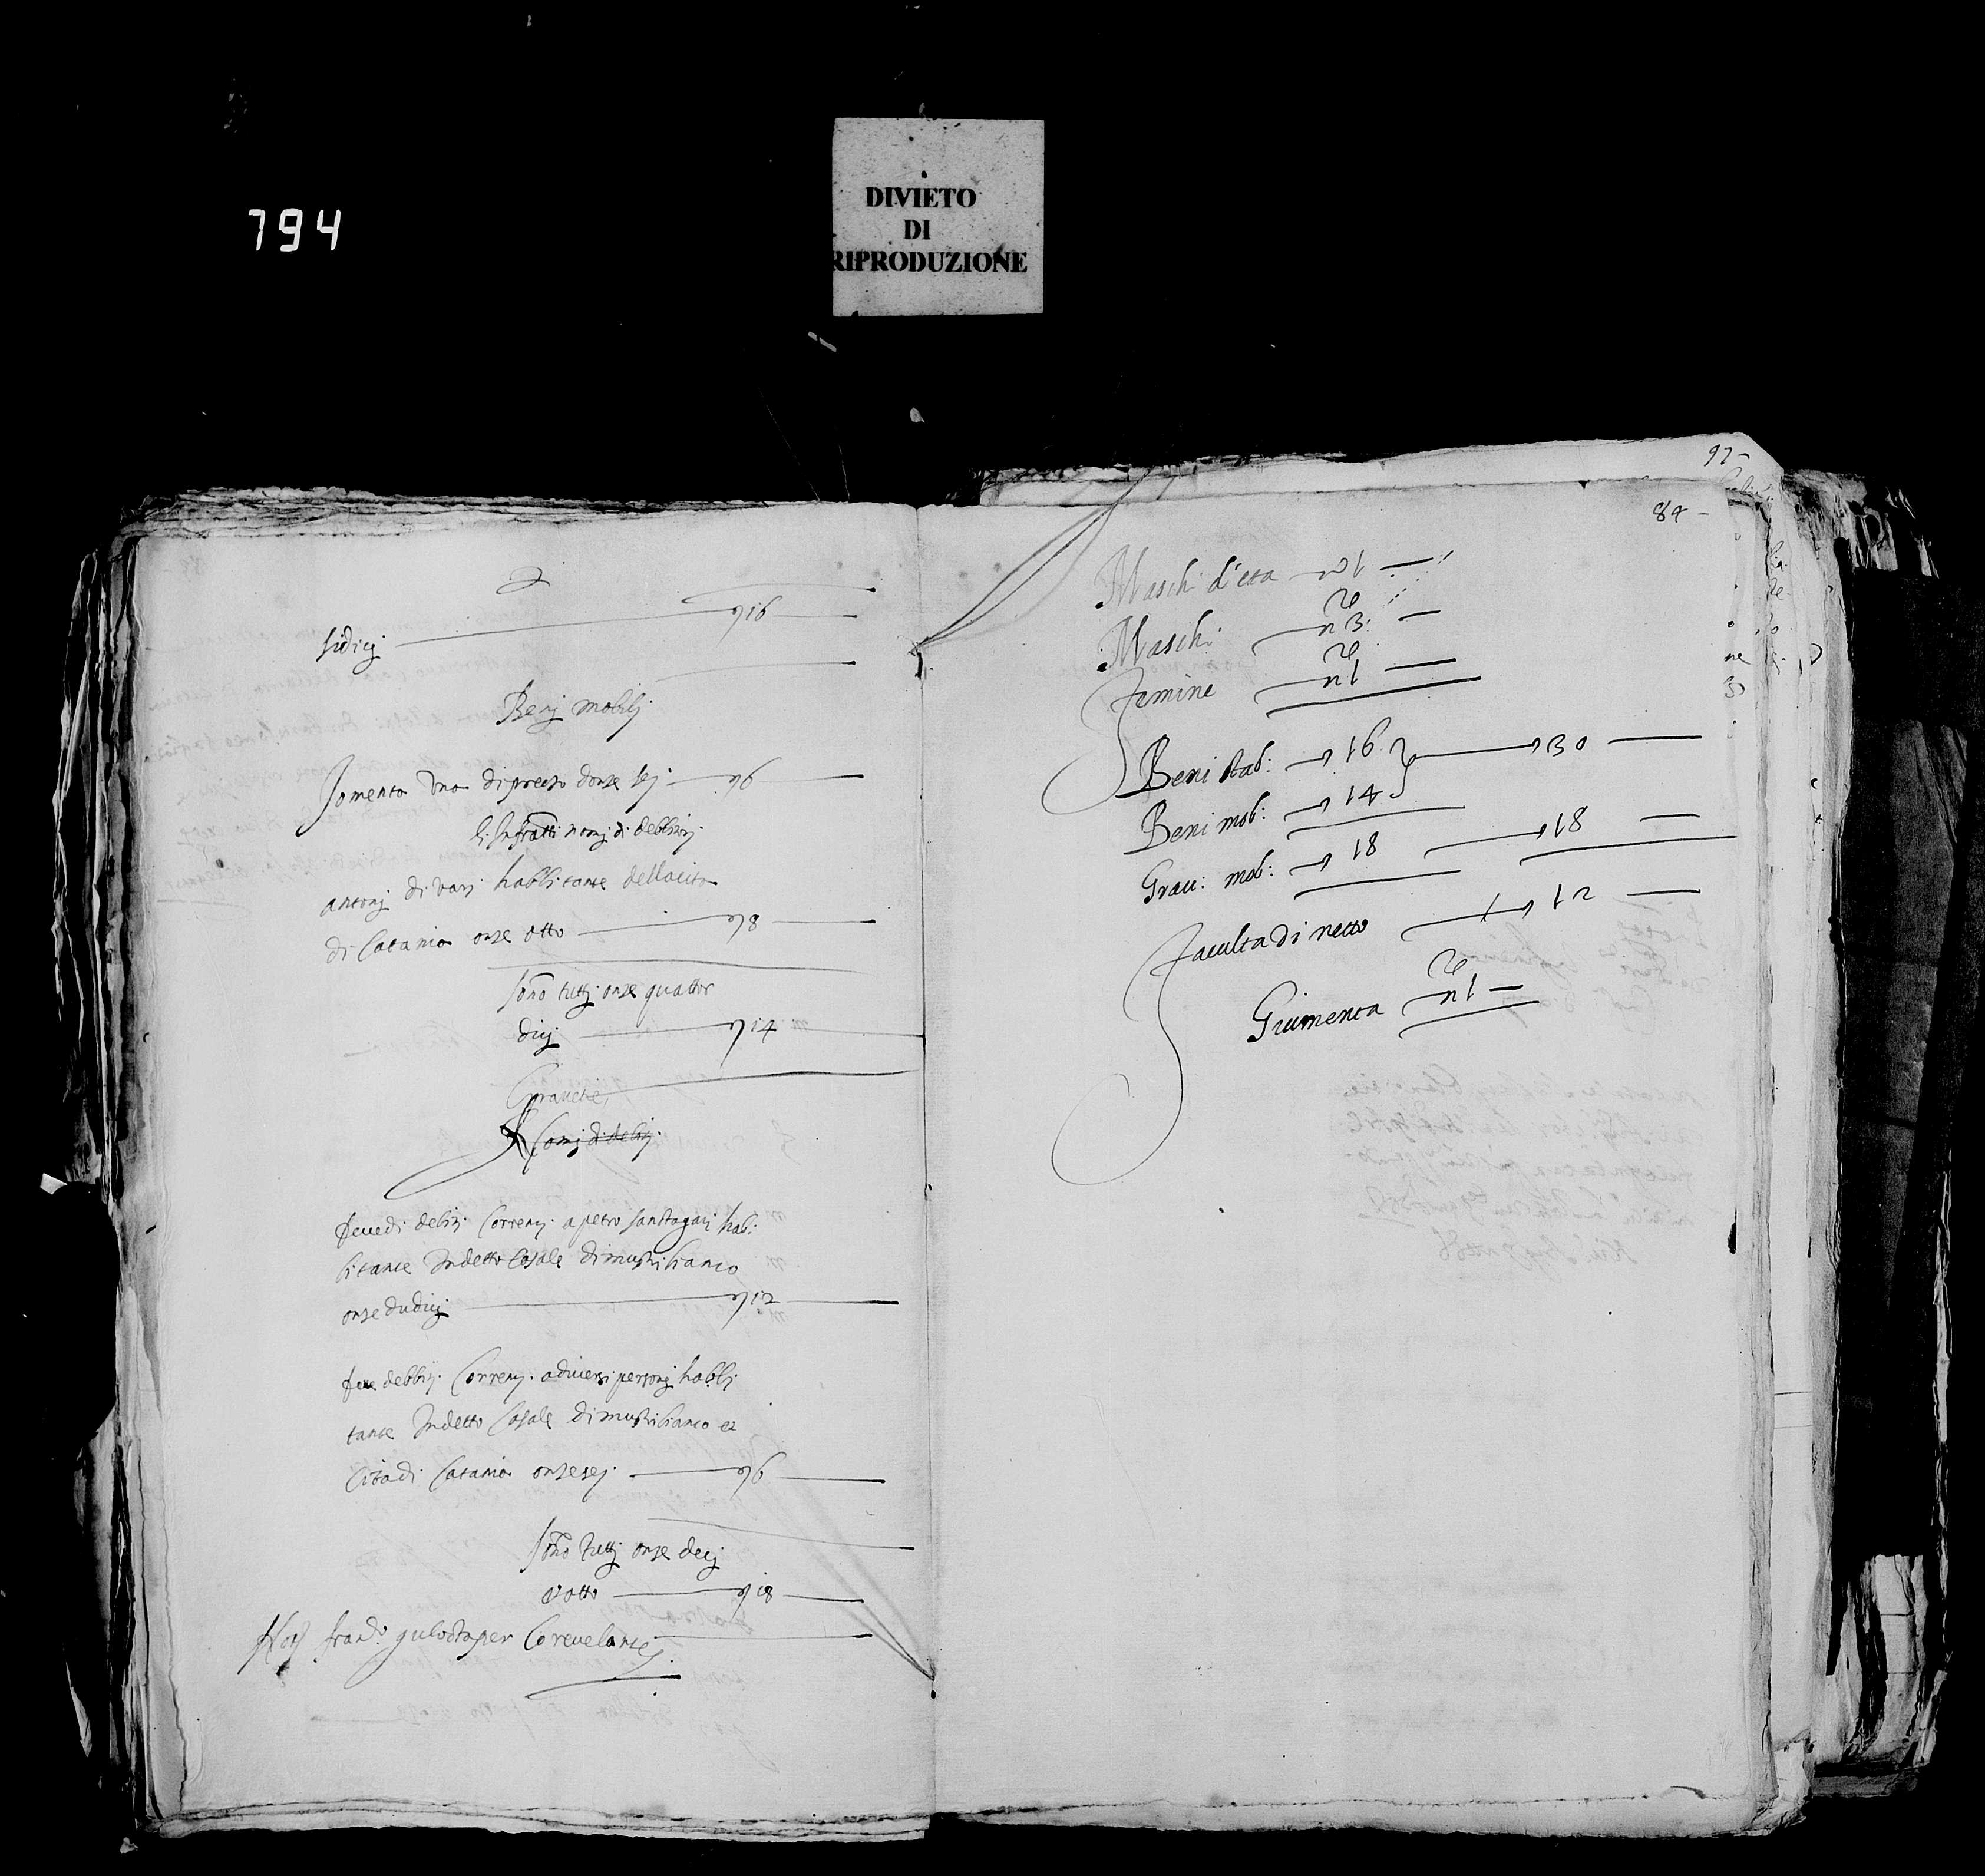 794
DIVIETO
DI
RIPRODUZIONE
97
84
sidicj 16
Benj mobilj
Jomenta una di prezzo d'onze sej 6
li infratti nomj di debbitorj
antonj di vasj habbitante della cita
di Catania onze otto 8
sono tuttj onze quattor
dicj 14
Gravetie
deve di debiti correnj a petro santagati habi
bitante in detto casale di mustribianco
onze dudicj 12
deve debbiti correnj a diversi personj habbi
tante in detto casale di mustribianco et
cita di Catania onze sej 6
sono tuttj onze decj
e otto 18
per lo revelante
Maschi d'eta n 1
Maschi n 3
Femine n 1
Beni stab: 16 30
Beni mob: 14
Grav: mob: 18 18
Faculta di netto 12
Giumenta n 1